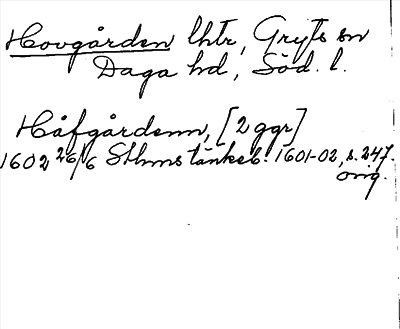 Hovgården lhtr, Gryts sn
Daga hd, Söd. l.
Håfgårdenn, [2 ggr]
1602 26/6 Sthms tänkeb. 1601-02, s. 247.
orig.